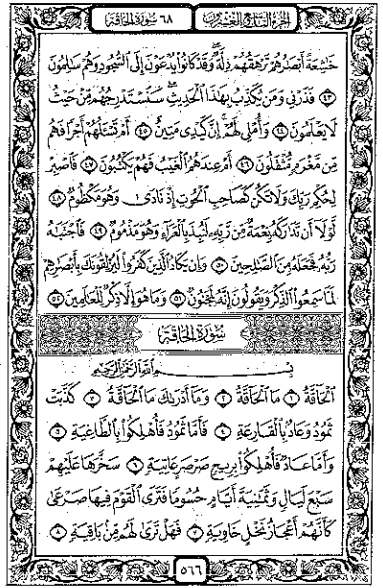 الجزء التاسع والعشرون
٦٨ سورة الحاقة
خَٰشِعَةً أَبْصَٰرُهُمْ تَرْهَقُهُمْ ذِلَّةٌ وَقَدْ كَانُوا۟ يُدْعَوْنَ إِلَى ٱلسُّجُودِ وَهُمْ سَٰلِمُونَ
٤٣ فَذَرْنِى وَمَن يُكَذِّبُ بِهَٰذَا ٱلْحَدِيثِ سَنَسْتَدْرِجُهُم مِّنْ حَيْثُ
لَا يَعْلَمُونَ ٤٤ وَأُمْلِى لَهُمْ إِنَّ كَيْدِى مَتِينٌ ٤٥ أَمْ تَسْـَٔلُهُمْ أَجْرًا فَهُم
مِّن مَّغْرَمٍ مُّثْقَلُونَ ٤٦ أَمْ عِندَهُمُ ٱلْغَيْبُ فَهُمْ يَكْتُبُونَ ٤٧ فَٱصْبِرْ
لِحُكْمِ رَبِّكَ وَلَا تَكُن كَصَاحِبِ ٱلْحُوتِ إِذْ نَادَىٰ وَهُوَ مَكْظُومٌ ٤٨
لَّوْلَآ أَن تَدَٰرَكَهُۥ نِعْمَةٌ مِّن رَّبِّهِۦ لَنُبِذَ بِٱلْعَرَآءِ وَهُوَ مَذْمُومٌ ٤٩ فَٱجْتَبَٰهُ
رَبُّهُۥ فَجَعَلَهُۥ مِنَ ٱلصَّٰلِحِينَ ٥٠ وَإِن يَكَادُ ٱلَّذِينَ كَفَرُوا۟ لَيُزْلِقُونَكَ بِأَبْصَٰرِهِمْ
لَمَّا سَمِعُوا۟ ٱلذِّكْرَ وَيَقُولُونَ إِنَّهُۥ لَمَجْنُونٌ ٥١ وَمَا هُوَ إِلَّا ذِكْرٌ لِّلْعَٰلَمِينَ ٥٢
سُورَةُ الْحَاقَّةِ
بِسْمِ ٱللَّهِ ٱلرَّحْمَٰنِ ٱلرَّحِيمِ
ٱلْحَآقَّةُ ١ مَا ٱلْحَآقَّةُ ٢ وَمَآ أَدْرَىٰكَ مَا ٱلْحَآقَّةُ ٣ كَذَّبَتْ
ثَمُودُ وَعَادٌۢ بِٱلْقَارِعَةِ ٤ فَأَمَّا ثَمُودُ فَأُهْلِكُوا۟ بِٱلطَّاغِيَةِ ٥
وَأَمَّا عَادٌ فَأُهْلِكُوا۟ بِرِيحٍ صَرْصَرٍ عَاتِيَةٍ ٦ سَخَّرَهَا عَلَيْهِمْ
سَبْعَ لَيَالٍ وَثَمَٰنِيَةَ أَيَّامٍ حُسُومًا فَتَرَى ٱلْقَوْمَ فِيهَا صَرْعَىٰ
كَأَنَّهُمْ أَعْجَازُ نَخْلٍ خَاوِيَةٍ ٧ فَهَلْ تَرَىٰ لَهُم مِّنۢ بَاقِيَةٍ ٨
٥٦٦